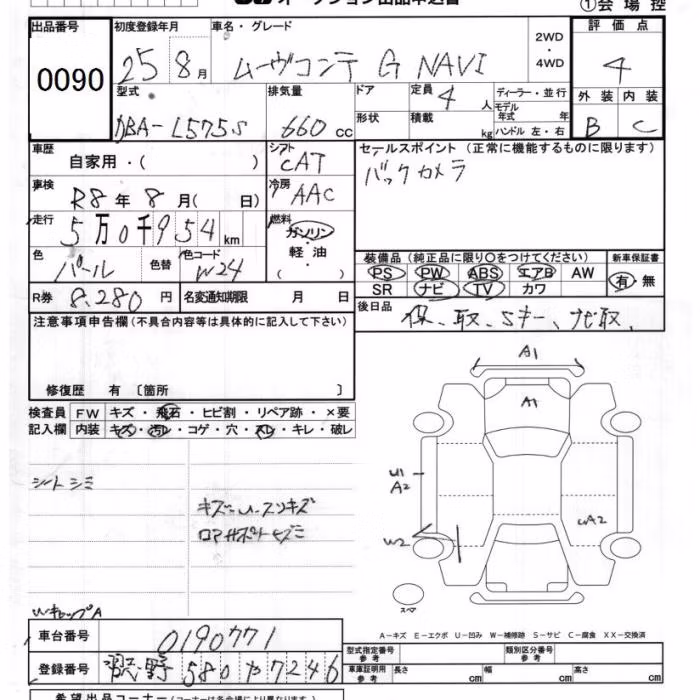 ①会場控
出品番号
0090
初度登録年月
25 8月
車名・グレード
ムーヴコンテ G NAVI
2WD
・
4WD
評価点
4
外装 内装
B C
型式
DBA-L575S
排気量
660 cc
ドア
形状
定員 4 人
積載 kg
ディーラー・並行
モデル
年式 年
ハンドル 左・右
車歴
自家用・( )
シフト
CAT
セールスポイント (正常に機能するものに限ります)
バックカメラ
車検
R8年 8月( 日)
冷房
AAC
走行
5万0千954km
燃料
ガソリン
・
軽油
( ・ )
色
パール
色替
色コード
W24
装備品 (純正品に限り○をつけてください)
PS PW ABS エアB AW
SR ナビ TV カワ
新車保証書
有・無
R券 8,280円
名変通知期限 月 日
後日品
保、取、Sキー、ナビ取、
注意事項申告欄 (不具合内容等は具体的に記入して下さい)
修復歴 有 〔箇所 〕
検査員
記入欄
FW キズ・飛石・ヒビ割・リペア跡・×要
内装 キズ・汚レ・コゲ・穴・スレ・キレ・破レ
シートシミ
キズ・U・スリキズ
ロアサポートキズミ
A1
A1
U1
A2
W2
UA2
スペア
WキャップA
A-キズ E-エクボ U-凹み W-補修跡 S-サビ C-腐食 XX-交換済
車台番号
0190771
登録番号
580 や 7246
型式指定番号
参考
類別区分番号
参考
車庫証明用
参考
長さ cm 幅 cm 高さ cm
希望出品コーナー